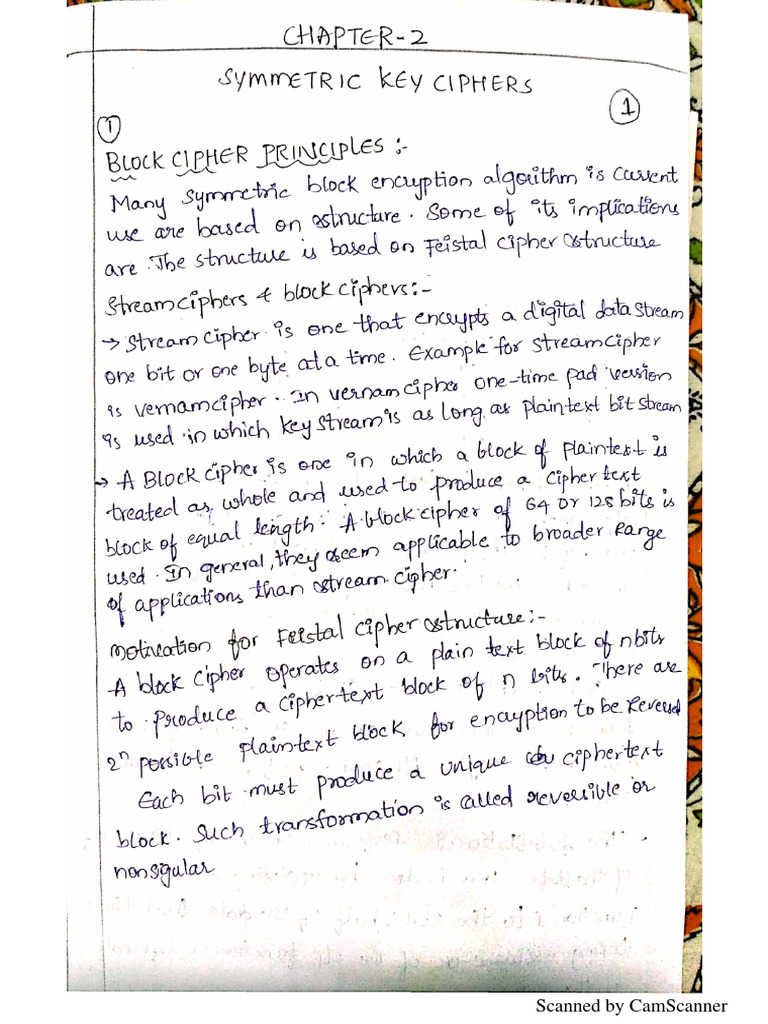 CHAPTER-2
SYMMETRIC KEY CIPHERS
1
1
BLOCK CIPHER PRINCIPLES :-
Many symmetric block encryption algorithm is current
use are based on structure. Some of its implications
are. The structure is based on Feistal cipher structure
Stream ciphers & block ciphers:-
→ Stream cipher is one that encrypts a digital data stream
one bit or one byte at a time. Example for stream cipher
is vernam cipher. In vernam cipher one-time pad version
is used in which key stream is as long as plaintext bit stream
→ A Block cipher is one in which a block of plaintext is
treated as whole and used to produce a cipher text
block of equal length. A block cipher of 64 or 128 bits is
used. In general, they seem applicable to broader range
of applications than stream cipher.
Motivation for Feistal cipher structure:-
A block cipher operates on a plain text block of n bits
to produce a ciphertext block of n bits. There are
2ⁿ possible plaintext block for encryption to be reversed
Each bit must produce a unique ciphertext
block. Such transformation is called reversible or
nonsgular
Scanned by CamScanner